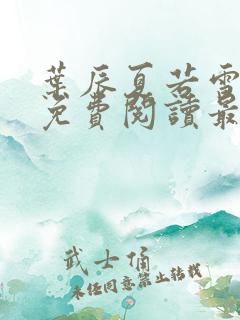 葉辰夏若雪
免費閱讀最
武士俑
未經同意禁止轉載